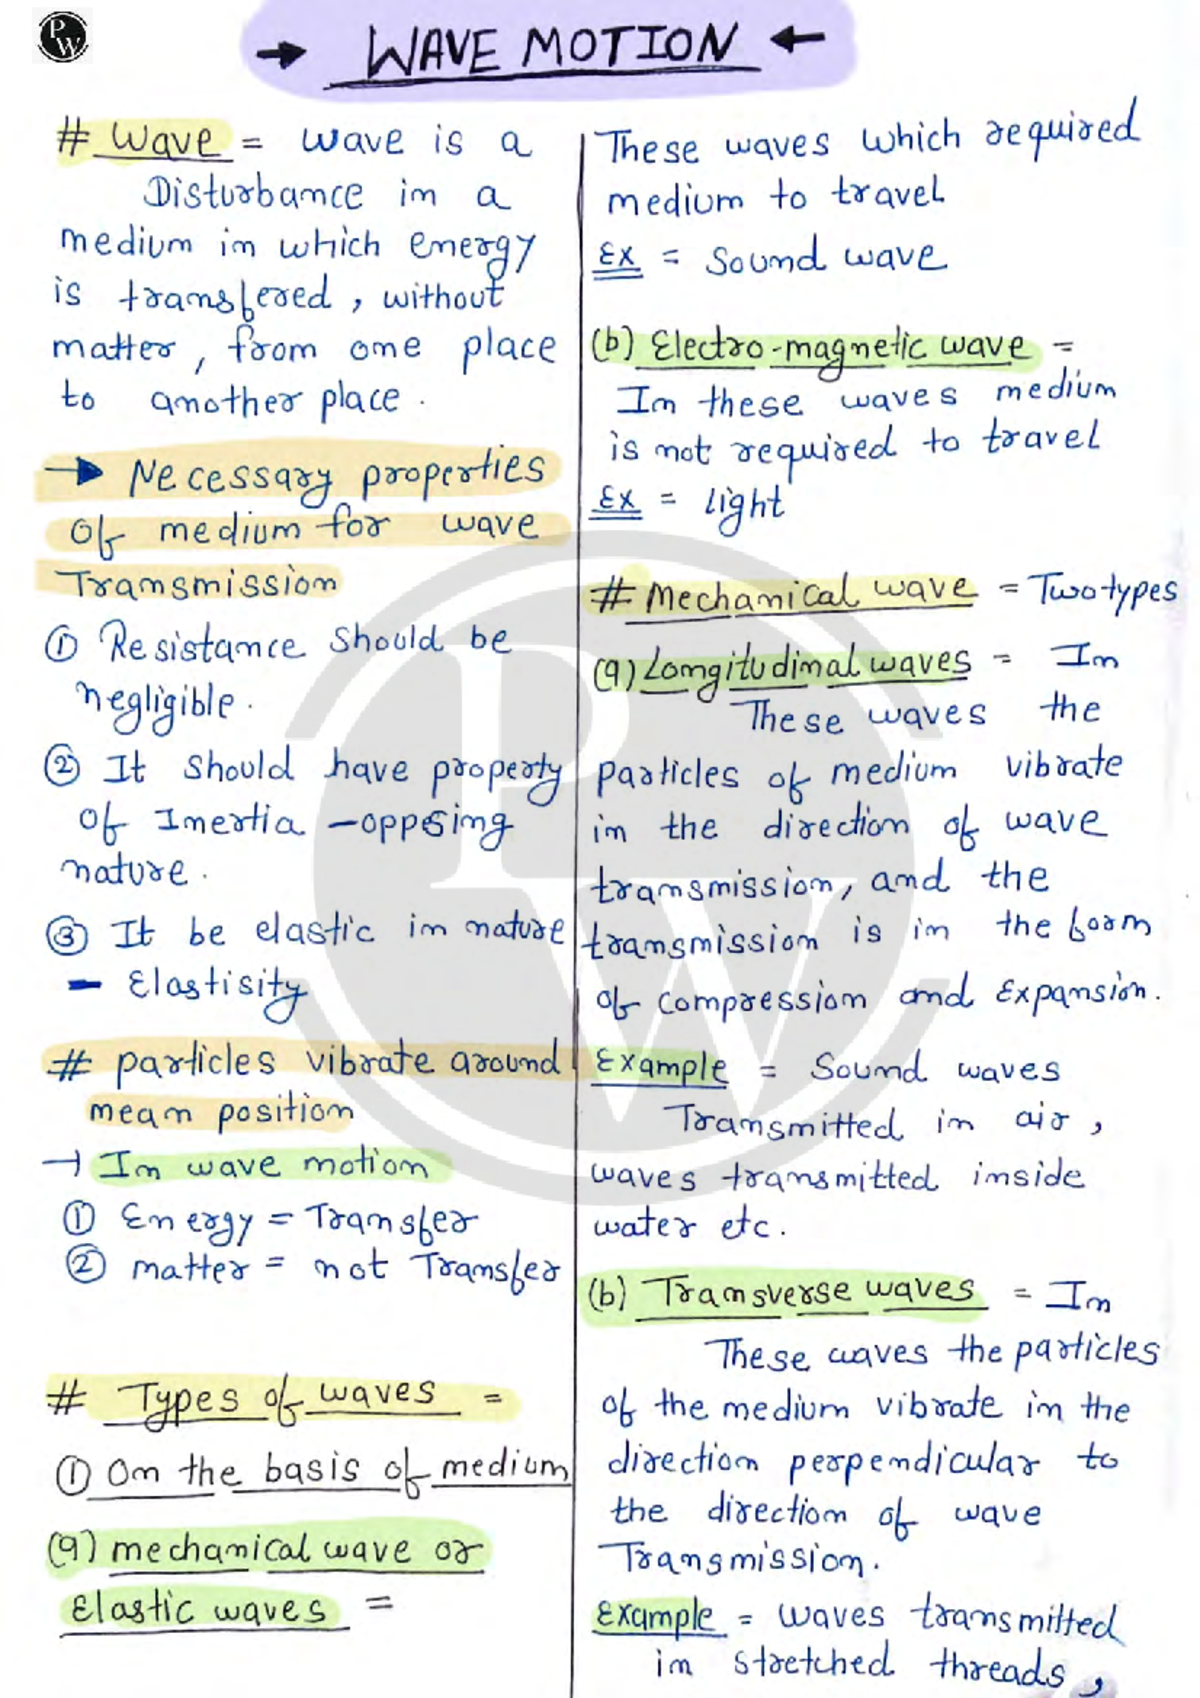 PW
→ WAVE MOTION ←
# Wave = wave is a
Disturbance in a
medium in which energy
is transfered, without
matter, from one place
to another place.
→ Necessary properties
of medium for wave
Transmission
① Resistance should be
negligible.
② It should have property
of Inertia - opposing
nature.
③ It be elastic in nature
- Elastisity
# particles vibrate around
mean position
→ In wave motion
① Energy = Transfer
② matter = not Transfer
# Types of waves =
① On the basis of medium
(a) mechanical wave or
Elastic waves =
These waves which required
medium to travel
Ex = Sound wave
(b) Electro-magnetic wave =
In these waves medium
is not required to travel
Ex = Light
# Mechanical wave = Two types
(a) Longitudinal waves = In
These waves the
particles of medium vibrate
in the direction of wave
transmission, and the
transmission is in the form
of compression and Expansion.
Example = Sound waves
Transmitted in air,
waves transmitted inside
water etc.
(b) Transverse waves = In
These waves the particles
of the medium vibrate in the
direction perpendicular to
the direction of wave
Transmission.
Example = waves transmitted
in stretched threads,
PW